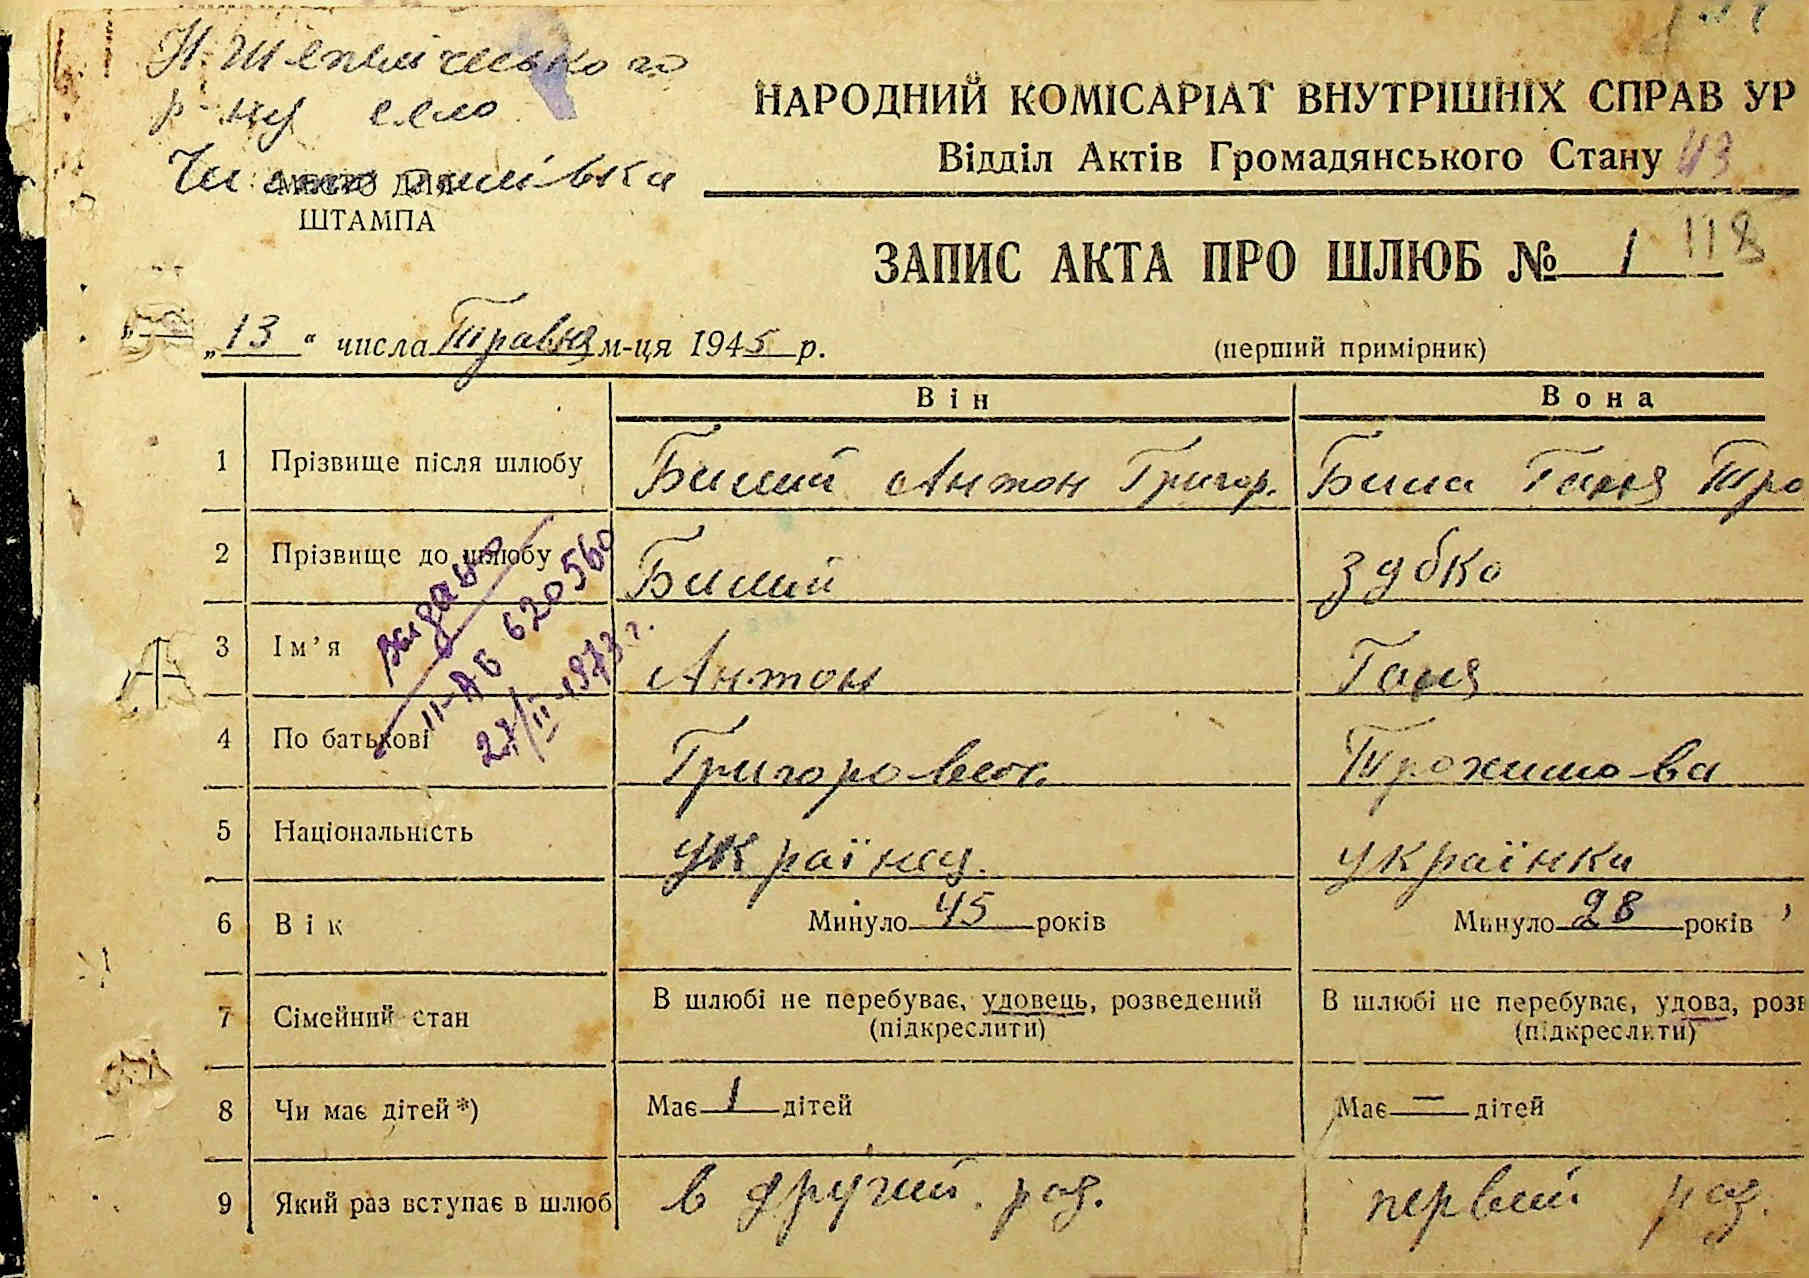 р-ну село
НАРОДНИЙ КОМІСАРІАТ ВНУТРІШНІХ СПРАВ УР
Відділ Актів Громадянського Стану 43
МІСЦЕ ДЛЯ
ШТАМПА
ЗАПИС АКТА ПРО ШЛЮБ № 1 118
„13“ числа Травня м-ця 1945 р.
(перший примірник)
Він Вона
1 Прізвище після шлюбу Билий Антон Григор. Била Ганя Тро
2 Прізвище до шлюбу Билий Зубко
3 Ім’я Антон Ганя
4 По батькові Григорович
5 Національність українец. українка
6 Вік Минуло 45 років Минуло 28 років
7 Сімейний стан В шлюбі не перебуває, удовець, розведений В шлюбі не перебуває, удова, розв
(підкреслити) (підкреслити)
8 Чи має дітей *) Має 1 дітей Має — дітей
9 Який раз вступає в шлюб в другий. раз. первий раз.
видано
II-АБ 620560
27/II-1973 г.